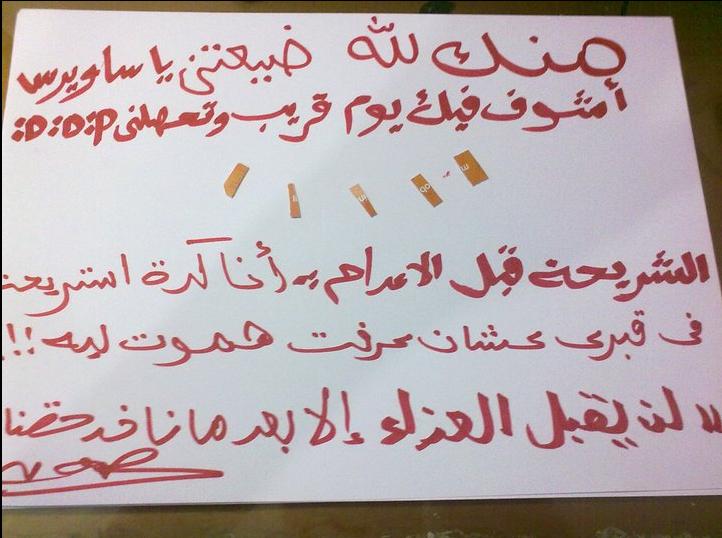 منك لله ضيعتني يا ساويرس
أشوف فيك يوم قريب وتعملني :D :D :P
الشريحة قبل الاعدام :- أنا كدة استريحت
فى قبرى عشان عرفت هموت ليه !!!
لن يقبل العزاء إلا بعد ما ناخد حقنا